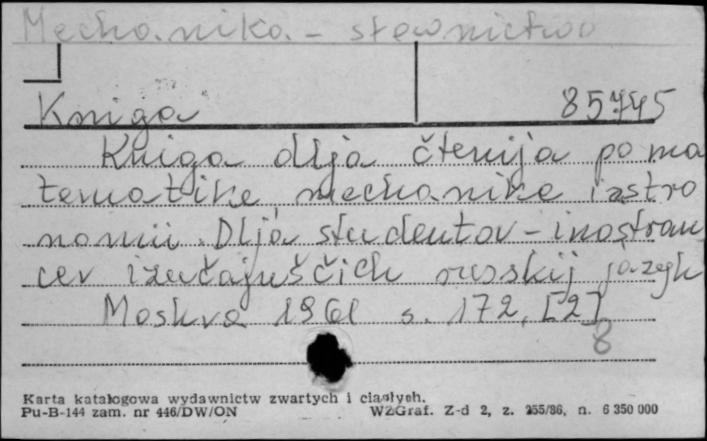 Mechanika - słownictwo
Kniga
85745
Kniga dlja čtenija po ma
tematike, mechanike i astro
nomii. Dlja studentov - inostran
cev izučajuščich russkij jazyk
Moskva 1961 s. 172, [2]
8
Karta katalogowa wydawnictw zwartych i ciągłych.
Pu-B-144 zam. nr 446/DW/ON
WZGraf. Z-d 2, z. 255/86, n. 6 350 000